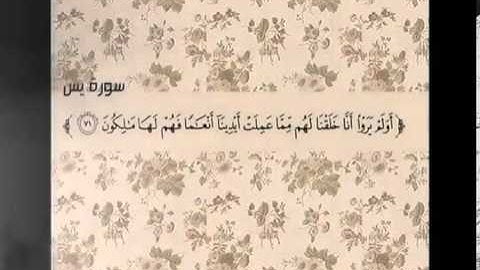 سورة يس
﴿ أَوَلَمْ يَرَوْا۟ أَنَّا خَلَقْنَا لَهُم مِّمَّا عَمِلَتْ أَيْدِينَآ أَنْعَٰمًا فَهُمْ لَهَا مَٰلِكُونَ ٧١ ﴾